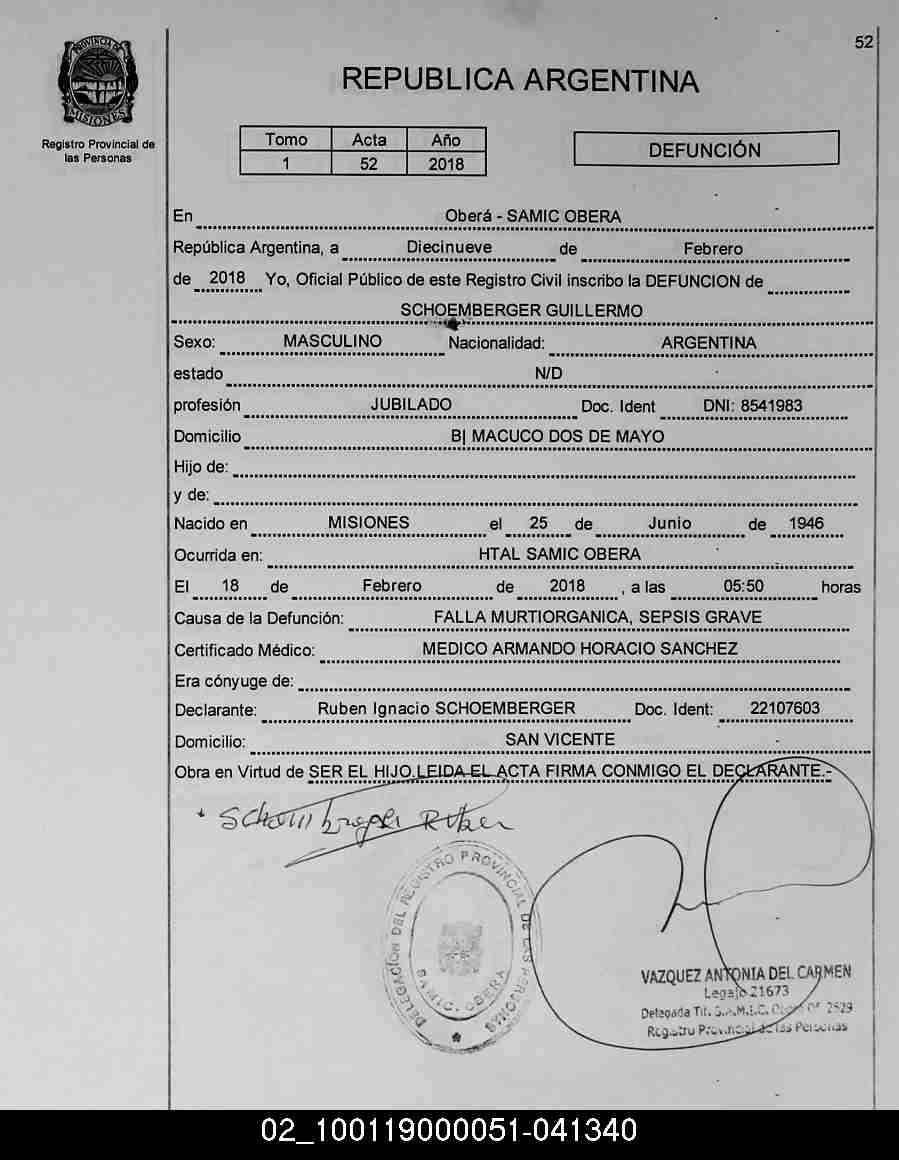 52
PROVINCIA DE
MISIONES
Registro Provincial de
las Personas
REPUBLICA ARGENTINA
Tomo Acta Año
1 52 2018
DEFUNCIÓN
En Oberá - SAMIC OBERA
República Argentina, a Diecinueve de Febrero
de 2018 Yo, Oficial Público de este Registro Civil inscribo la DEFUNCION de
SCHOEMBERGER GUILLERMO
Sexo: MASCULINO Nacionalidad: ARGENTINA
estado N/D
profesión JUBILADO Doc. Ident DNI: 8541983
Domicilio B| MACUCO DOS DE MAYO
Hijo de:
y de:
Nacido en MISIONES el 25 de Junio de 1946
Ocurrida en: HTAL SAMIC OBERA
El 18 de Febrero de 2018 , a las 05:50 horas
Causa de la Defunción: FALLA MURTIORGANICA, SEPSIS GRAVE
Certificado Médico: MEDICO ARMANDO HORACIO SANCHEZ
Era cónyuge de:
Declarante: Ruben Ignacio SCHOEMBERGER Doc. Ident: 22107603
Domicilio: SAN VICENTE
Obra en Virtud de SER EL HIJO.LEIDA EL ACTA FIRMA CONMIGO EL DECLARANTE.-
DELEGACIÓN DEL REGISTRO PROVINCIAL DE LAS PERSONAS
S.A.M.I.C. OBERA
VAZQUEZ ANTONIA DEL CARMEN
Legajo 21673
Delegada Tit. S.A.M.I.C. Of. 2529
Registro Provincial de las Personas
02_100119000051-041340